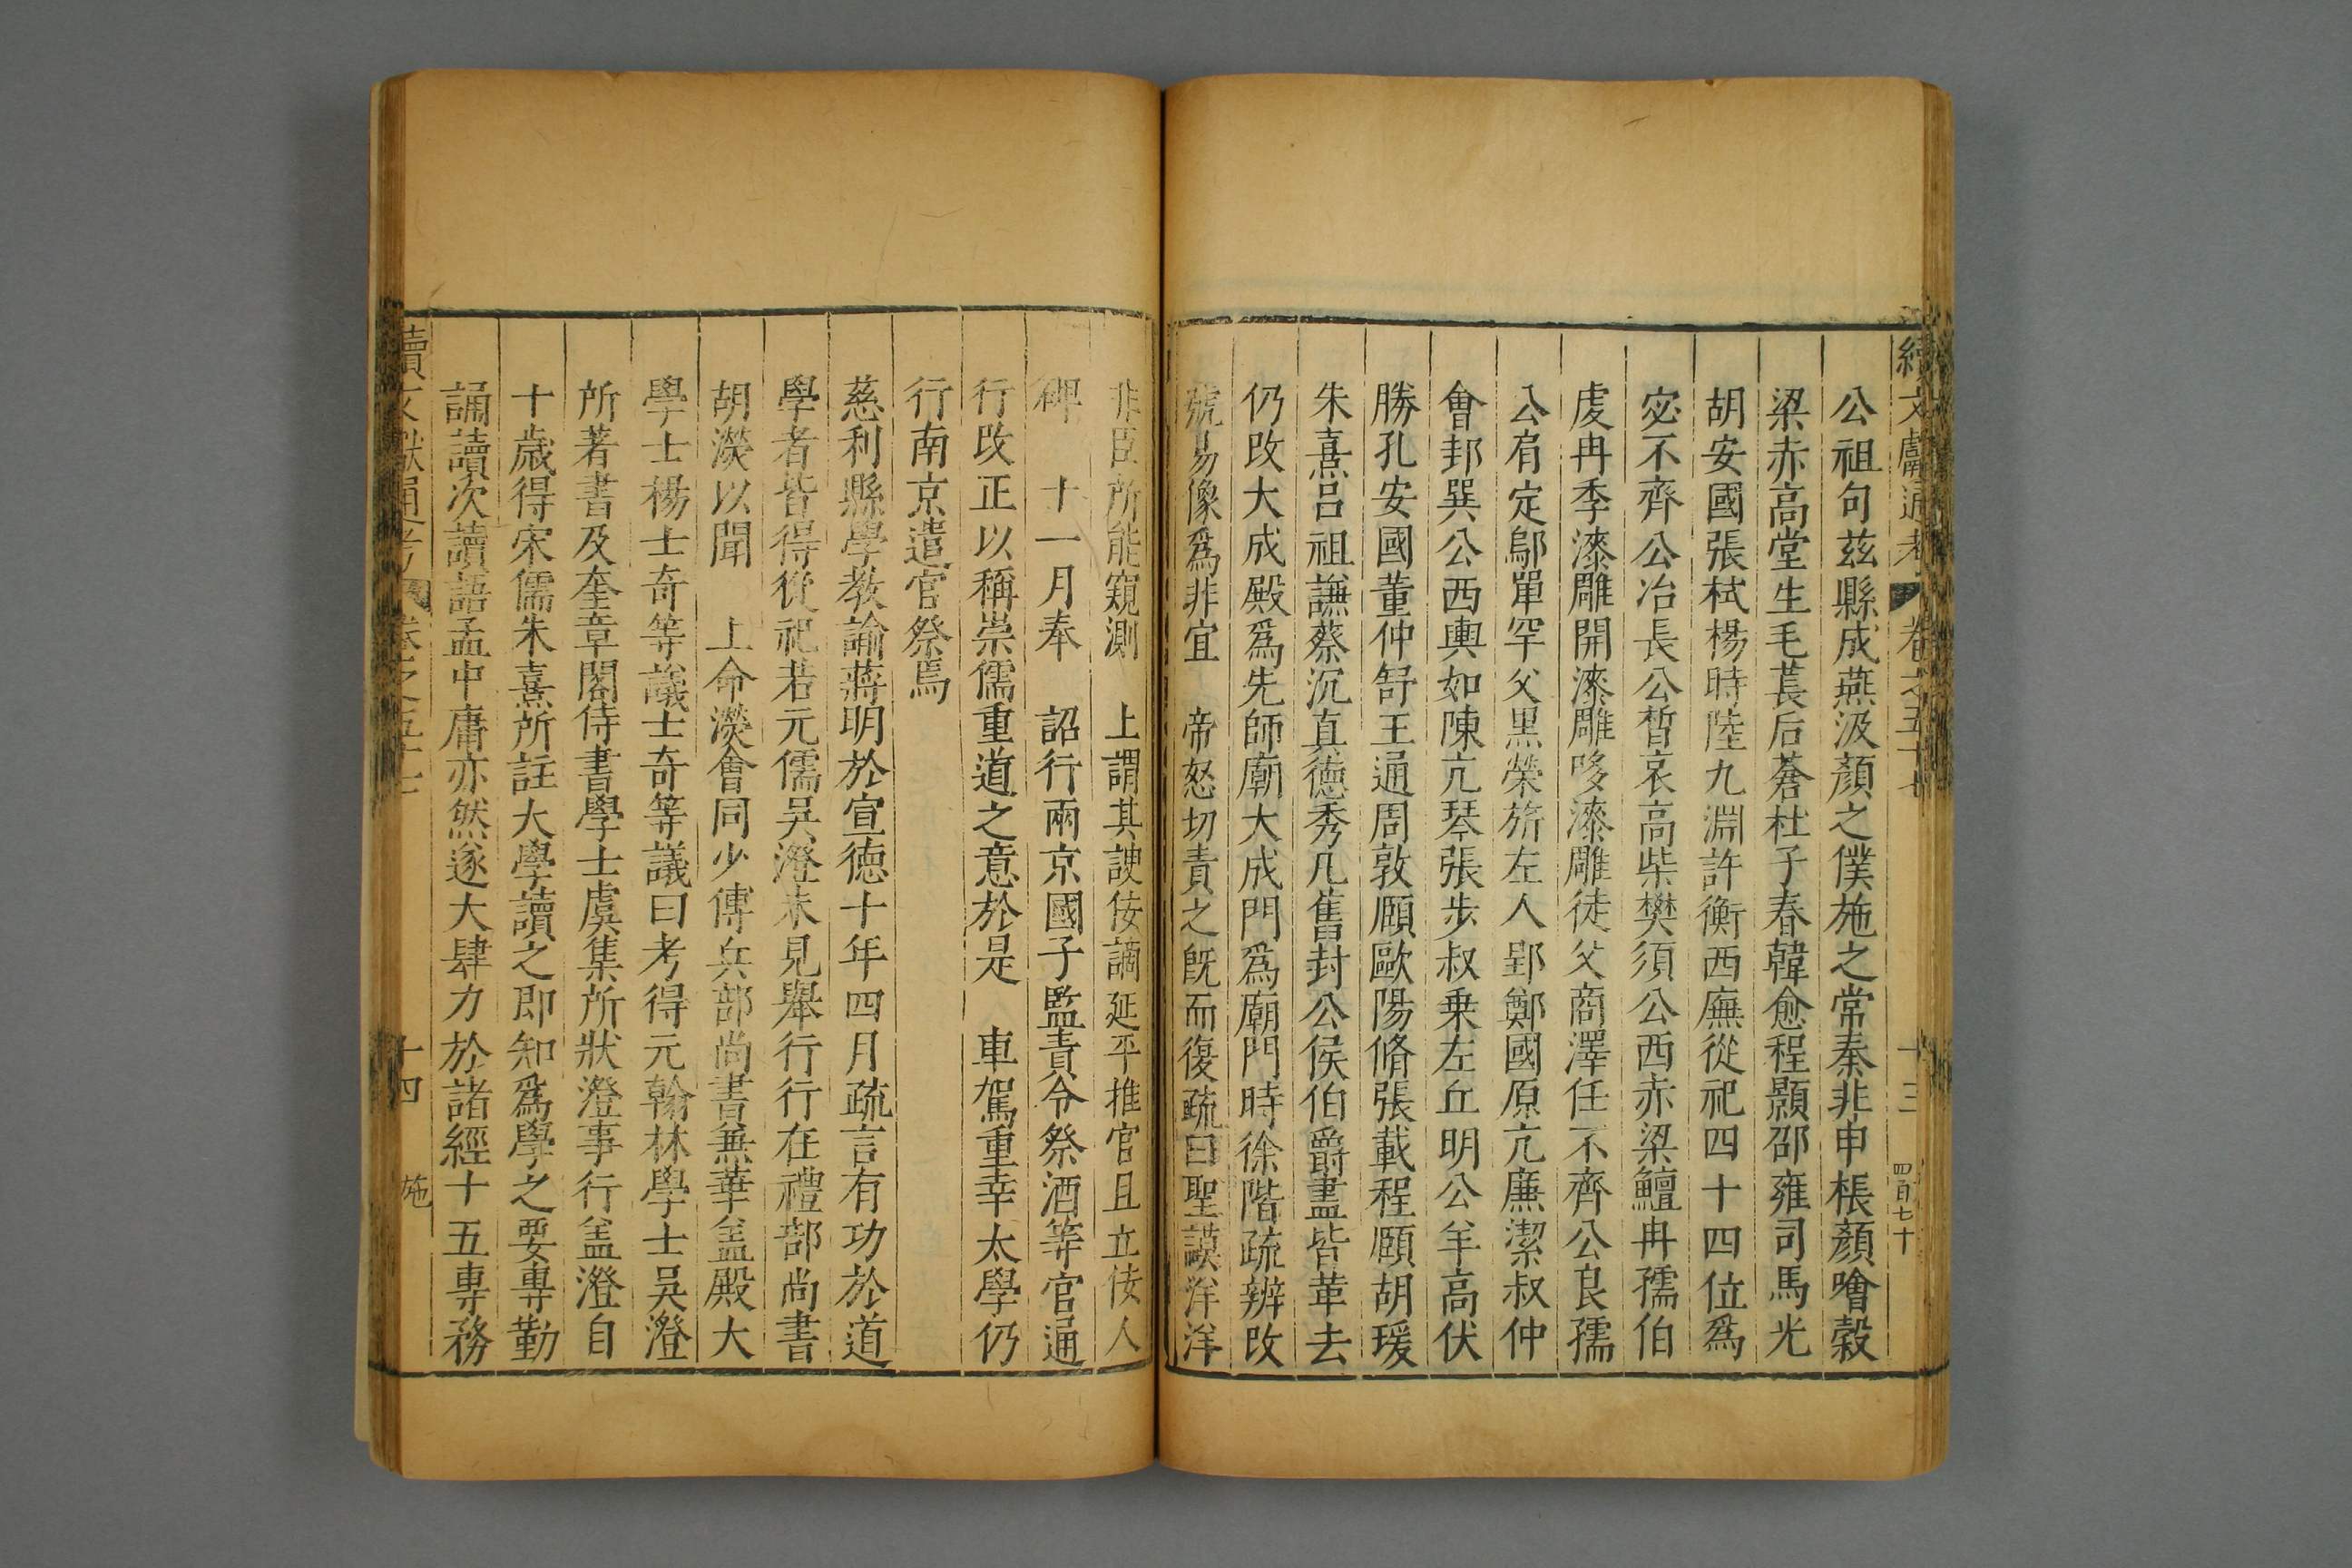 續文獻通考 卷之五十七 十三 四百七十
公祖句茲縣成燕汲顏之僕施之常秦非申棖顏噲榖
梁赤高堂生毛萇后蒼杜子春韓愈程顥邵雍司馬光
胡安國張栻楊時陸九淵許衡西廡從祀四十四位爲
宓不齊公冶長公晳哀高柴樊須公西赤梁鱣冉孺伯
虔冉季漆雕開漆雕哆漆雕徒父商澤任不齊公良孺
公肩定鄔單罕父黑榮旂左人郢鄭國原亢廉潔叔仲
會邽巽公西輿如陳亢琴張步叔乗左丘明公羊高伏
勝孔安國董仲舒王通周敦頤歐陽脩張載程頤胡瑗
朱熹呂祖謙蔡沉真德秀凡舊封公侯伯爵盡皆革去
仍改大成殿爲先師廟大成門爲廟門時徐階疏辨改
號易像爲非宜 帝怒切責之旣而復疏曰聖謨洋洋
非臣所能窺測 上謂其諛佞謫延平推官且立佞人
碑 十一月奉 詔行兩京國子監責令祭酒等官通
行改正以稱崇儒重道之意於是 車駕重幸太學仍
行南京遣官祭焉
慈利縣學教諭蔣明於宣德十年四月疏言有功於道
學者皆得從祀若元儒吳澄未見舉行行在禮部尚書
胡濙以聞 上命濙會同少傅兵部尚書兼華盖殿大
學士楊士奇等議士奇等議曰考得元翰林學士吳澄
所著書及奎章閣侍書學士虞集所狀澄事行盖澄自
十歲得宋儒朱熹所註大學讀之即知爲學之要專勤
誦讀次讀語孟中庸亦然遂大肆力於諸經十五專務
續文獻通考 卷之五十七 十四 施